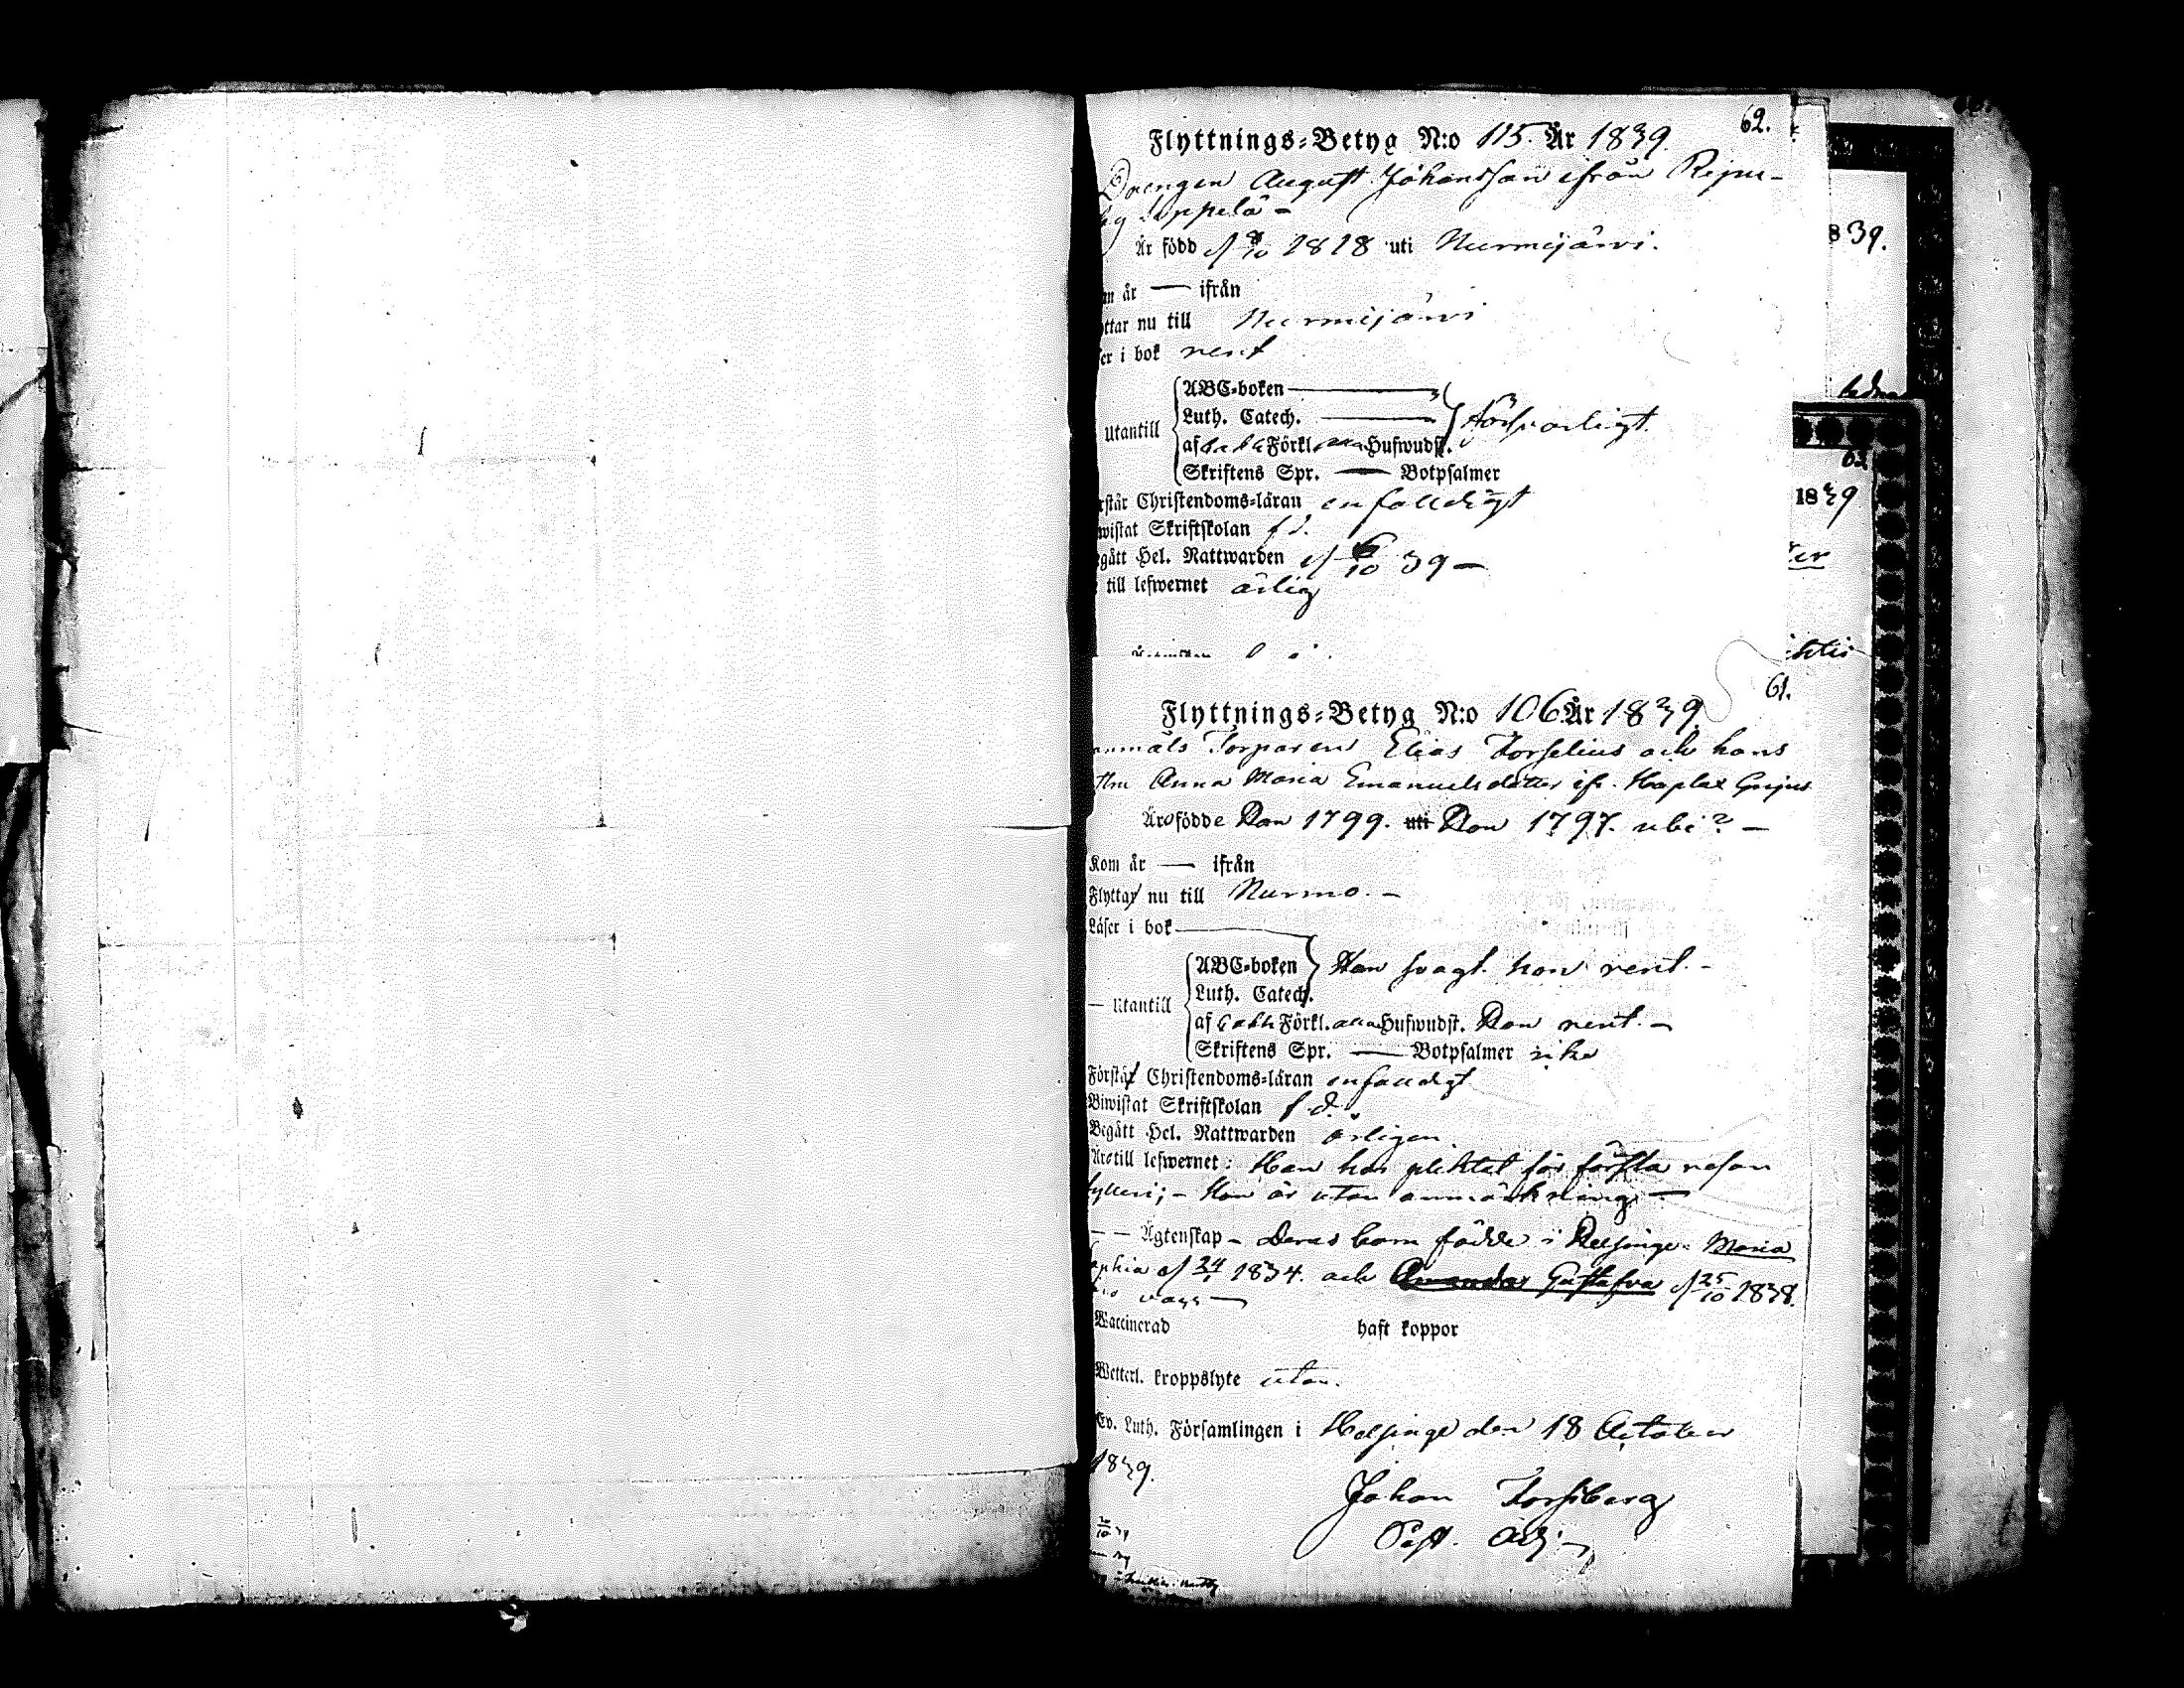 62.
Flyttnings-Betyg N:o 115. År 1839.
Drengen August Johansson ifrån
Är född d 8/10 1818 uti Nurmijärvi.
m år — ifrån
ttar nu till Nurmijärvi
er i bok rent
ABC-boken
Luth. Catech.
Utantill försvarligt.
af Förkl. Hufwudst.
Skriftens Spr. — Botpsalmer
rstår Christendoms-läran enfalldigt
wistat Skriftskolan f d.
gått Hel. Nattwarden d 6/10 39 —
till lefwernet ärlig
839.
62
1839
61.
Flyttnings-Betyg N:o 106 År 1839.
Torparen Elias Forselius och hans
Anna Maria Emanuelsdotter ifr. Hoplax
Äro födde Han 1799. uti Hon 1797. ubi? —
Kom år — ifrån
Flyttar nu till Nurmo. —
Läser i bok
ABC-boken Han svagt. hon rent. —
Luth. Catech.
— Utantill
af Förkl. alla Hufwudst. Hon rent. —
Skriftens Spr. — Botpsalmer
Förstår Christendoms-läran enfalldigt
Biwistat Skriftskolan f. d.
Begått Hel. Nattwarden årligen.
Äro till lefwernet: Han har pliktat för första resan
fylleri; — Hon är utan anmärkning —
— — Ägtenskap — Deras barn födde i Helsinge: Maria
ophia d 24/1 1834. och Amanda Gustafva d 25/10 1838.
Waccinerad haft koppor
Wetterl. kroppslyte utan.
Ev. Luth. Församlingen i Helsinge den 18 October
1839.
Johan Forsberg
Past. Adj.